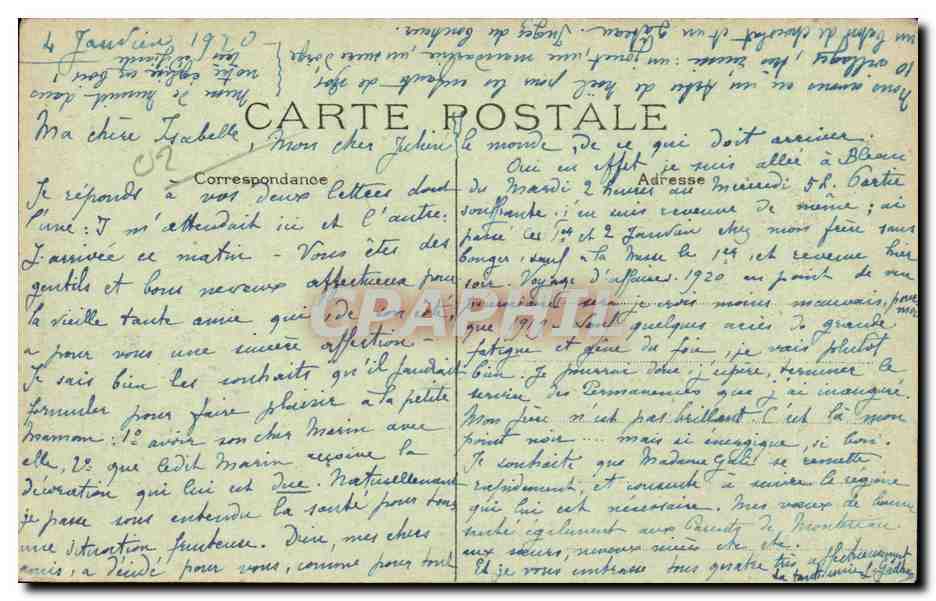 4 Janvier 1920
Ma chère Isabelle, Mon cher Julien
CARTE POSTALE
Correspondance
Adresse
02
Je réponds à vos deux lettres dont
l'une : I m'attendait ici et l'autre :
J. arrivée ce matin - Vous êtes des
gentils et bons neveux affectueux pour
la vieille tante amie qui, de son côté,
a pour vous une sincère affection -
Je sais bien les souhaits qu'il faudrait
formuler pour faire plaisir à la petite
Maman : 1º avoir son cher Marin avec
elle, 2º que ledit Marin reçoive la
décoration qui lui est due. Naturellement
je passe sous entendu la santé pour tous
une situation fructueuse. Dieu, mes chers
amis, a décidé pour vous, comme pour tout
le monde, de ce qui doit arriver.
Oui en effet je suis allée à Bleau
du Mardi 2 heures au Mercredi 5h. Partie
souffrante. j'en suis revenue de même ; ai
passé les 1er et 2 Janvier chez mon frère sans
bouger, sauf à la Messe le 1er, et revenue hier
soir. Voyage d'affaires. 1920 au point de vue
sera je crois moins mauvais, pour moi
que 1919 - Sauf quelques acies de grande
fatigue et gêne du foie, je vais plutôt
bien. Je pourrai donc, j'espère, terminer le
service des Permanences que j'ai inauguré.
Mon frère n'est pas brillant. C'est là mon
point noir .... mais si énergique, si bon.
Je souhaite que Madame Gali se remette
rapidement, et consente à suivre le régime
qui lui est nécessaire. Mes vœux de bonne
santé également aux Parents de Montereau
aux sœurs, neveux nièces etc. etc.
Et je vous embrasse tous quatre très affectueusement
La tante amie L.
Nous avons eu un Arbre de Noël pour les enfants de nos
10 villages, fin : un jouet, une mandarine, un sucre d'orge
un bâton de chocolat et un gâteau. Jugez du bonheur.
messe de minuit dans
notre église en bois
CPAPHIL